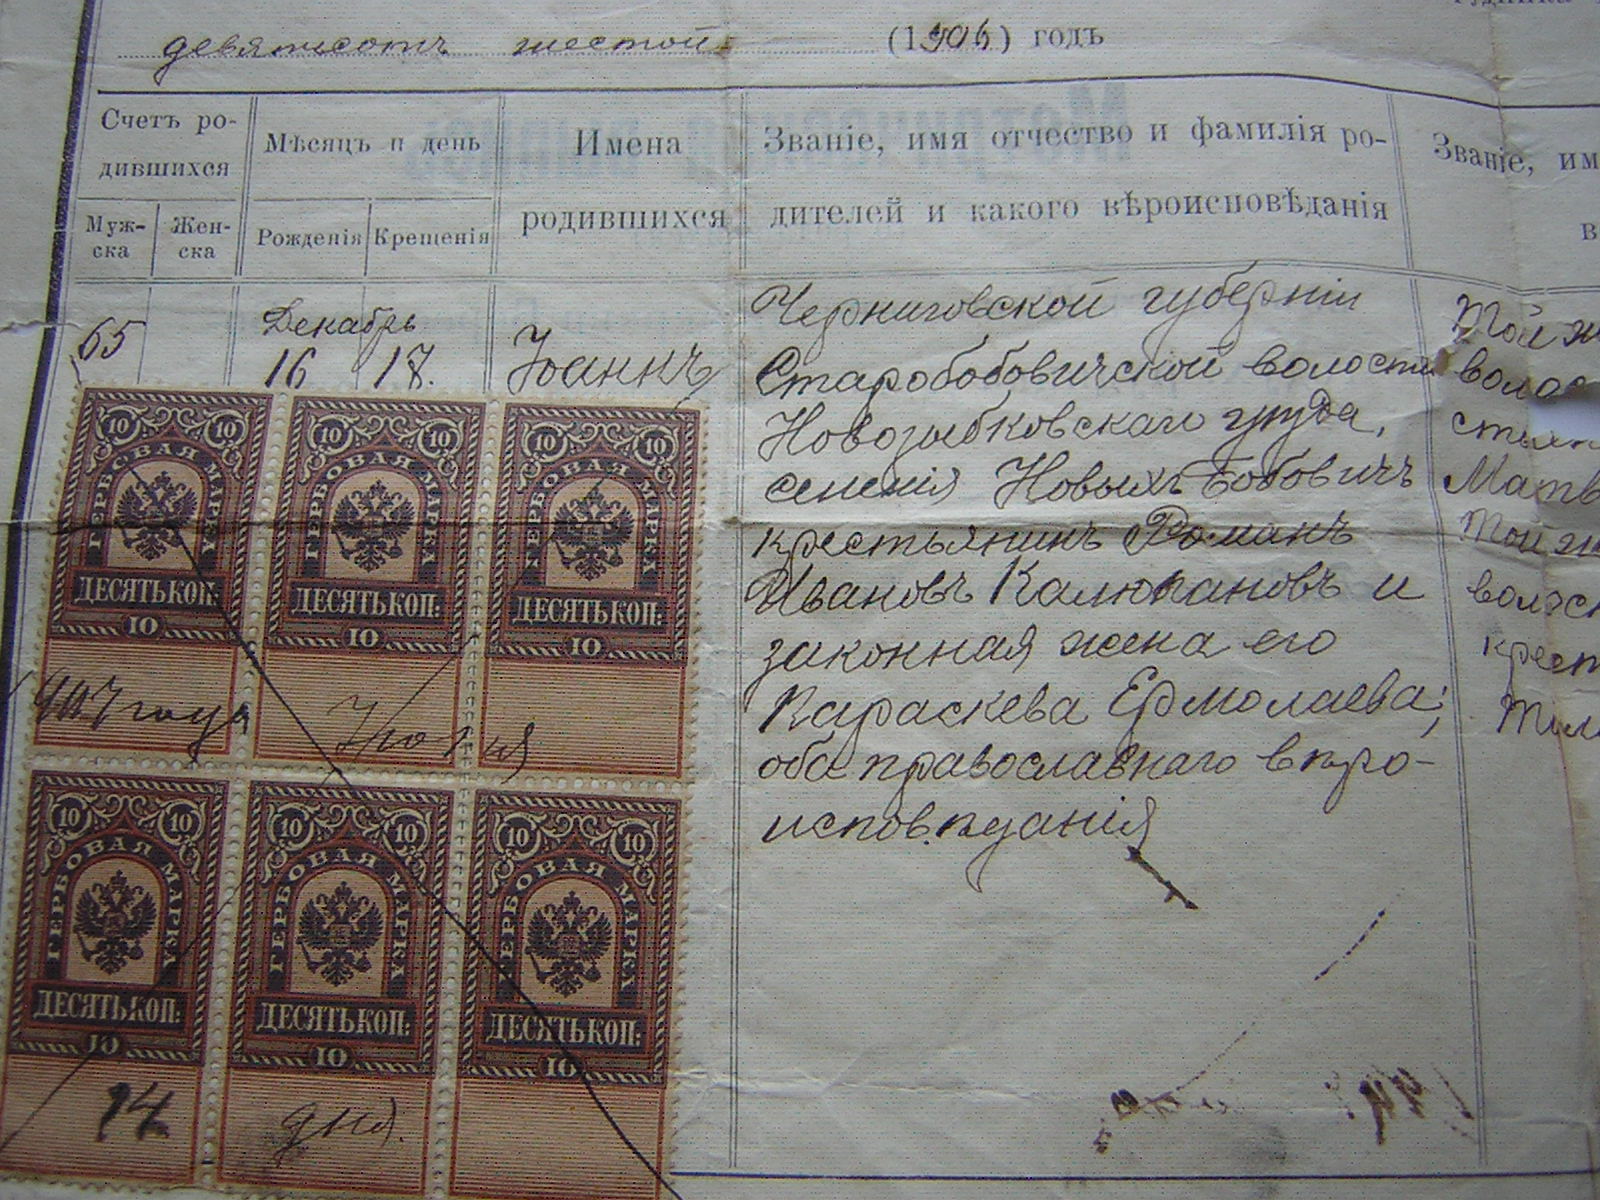 девятьсотъ шестой (1906) годъ
Счетъ ро-
дившихся
Муж-
ска
Жен-
ска
Мѣсяцъ и день
Рожденія
Крещенія
Имена
родившихся
Званіе, имя отчество и фамилія ро-
дителей и какого вѣроисповѣданія
Званіе, им
в
65
Декабрь
16
17.
Іоаннъ
Черниговской губерніи
Старобобовичской волости
Новозыбковскаго уѣзда,
селенія Новыхъ Бобовичъ
крестьянинъ Романъ
Ивановъ Калюкановъ и
законная жена его
Параскева Ермолаева;
оба православнаго вѣро-
исповѣданія
Той ж
воло
стьян
Матв
Той ж
волос
крест
10 10
ГЕРБОВАЯ МАРКА
ДЕСЯТЬ КОП:
10
10 10
ГЕРБОВАЯ МАРКА
ДЕСЯТЬ КОП:
10
10 10
ГЕРБОВАЯ МАРКА
ДЕСЯТЬ КОП:
10
1907 года
10 10
ГЕРБОВАЯ МАРКА
ДЕСЯТЬ КОП:
10
10 10
ГЕРБОВАЯ МАРКА
ДЕСЯТЬ КОП:
10
10 10
ГЕРБОВАЯ МАРКА
ДЕСЯТЬ КОП:
10
14 дня.